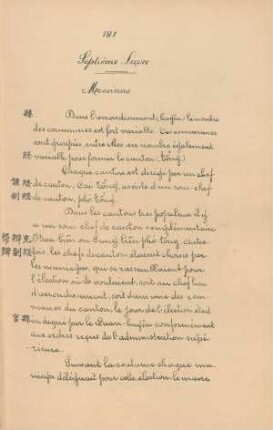 181
Septième Leçon
Messieurs
縣 Dans l'arrondissement, huyện, le nombre
des communes est fort variable. Ces communes
sont groupées entre elles en nombre également
總 variable pour former le canton (tổng)
Chaque canton est dirigé par un chef
de canton, Cai tổng, assisté d'un sous-chef
副總 de canton, phó tổng.
Dans les cantons très populeux il y
a un sous-chef de canton complémentaire
Ban biện ou Sung biện phó tổng. Autre-
fois, les chefs de canton étaient choisis par
les municipes, qui se rassemblaient pour
l'élection où ils voulaient, soit au chef-lieu
d'arrondissement, soit dans une des com-
munes du canton, le jour de l'élection était
indiqué par le Quan-huyện conformément
aux ordres reçus de l'administration supé-
rieure.
Suivant la coutume chaque mu-
nicipe déléguait pour cette élection, le maire